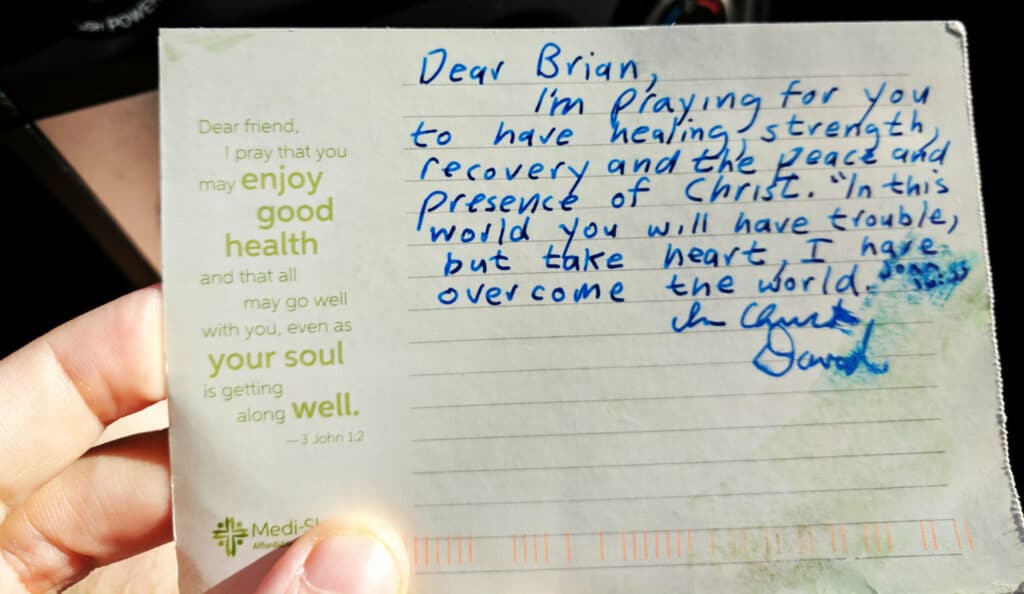 HIGH POWER
Dear friend,
I pray that you
may enjoy
good
health
and that all
may go well
with you, even as
your soul
is getting
along well.
—3 John 1:2
Medi-S
Affordab
Dear Brian,
I'm praying for you
to have healing, strength,
recovery and the peace and
presence of Christ. "In this
world you will have trouble,
but take heart, I have
overcome the world. John 16:33
In Christ,
David